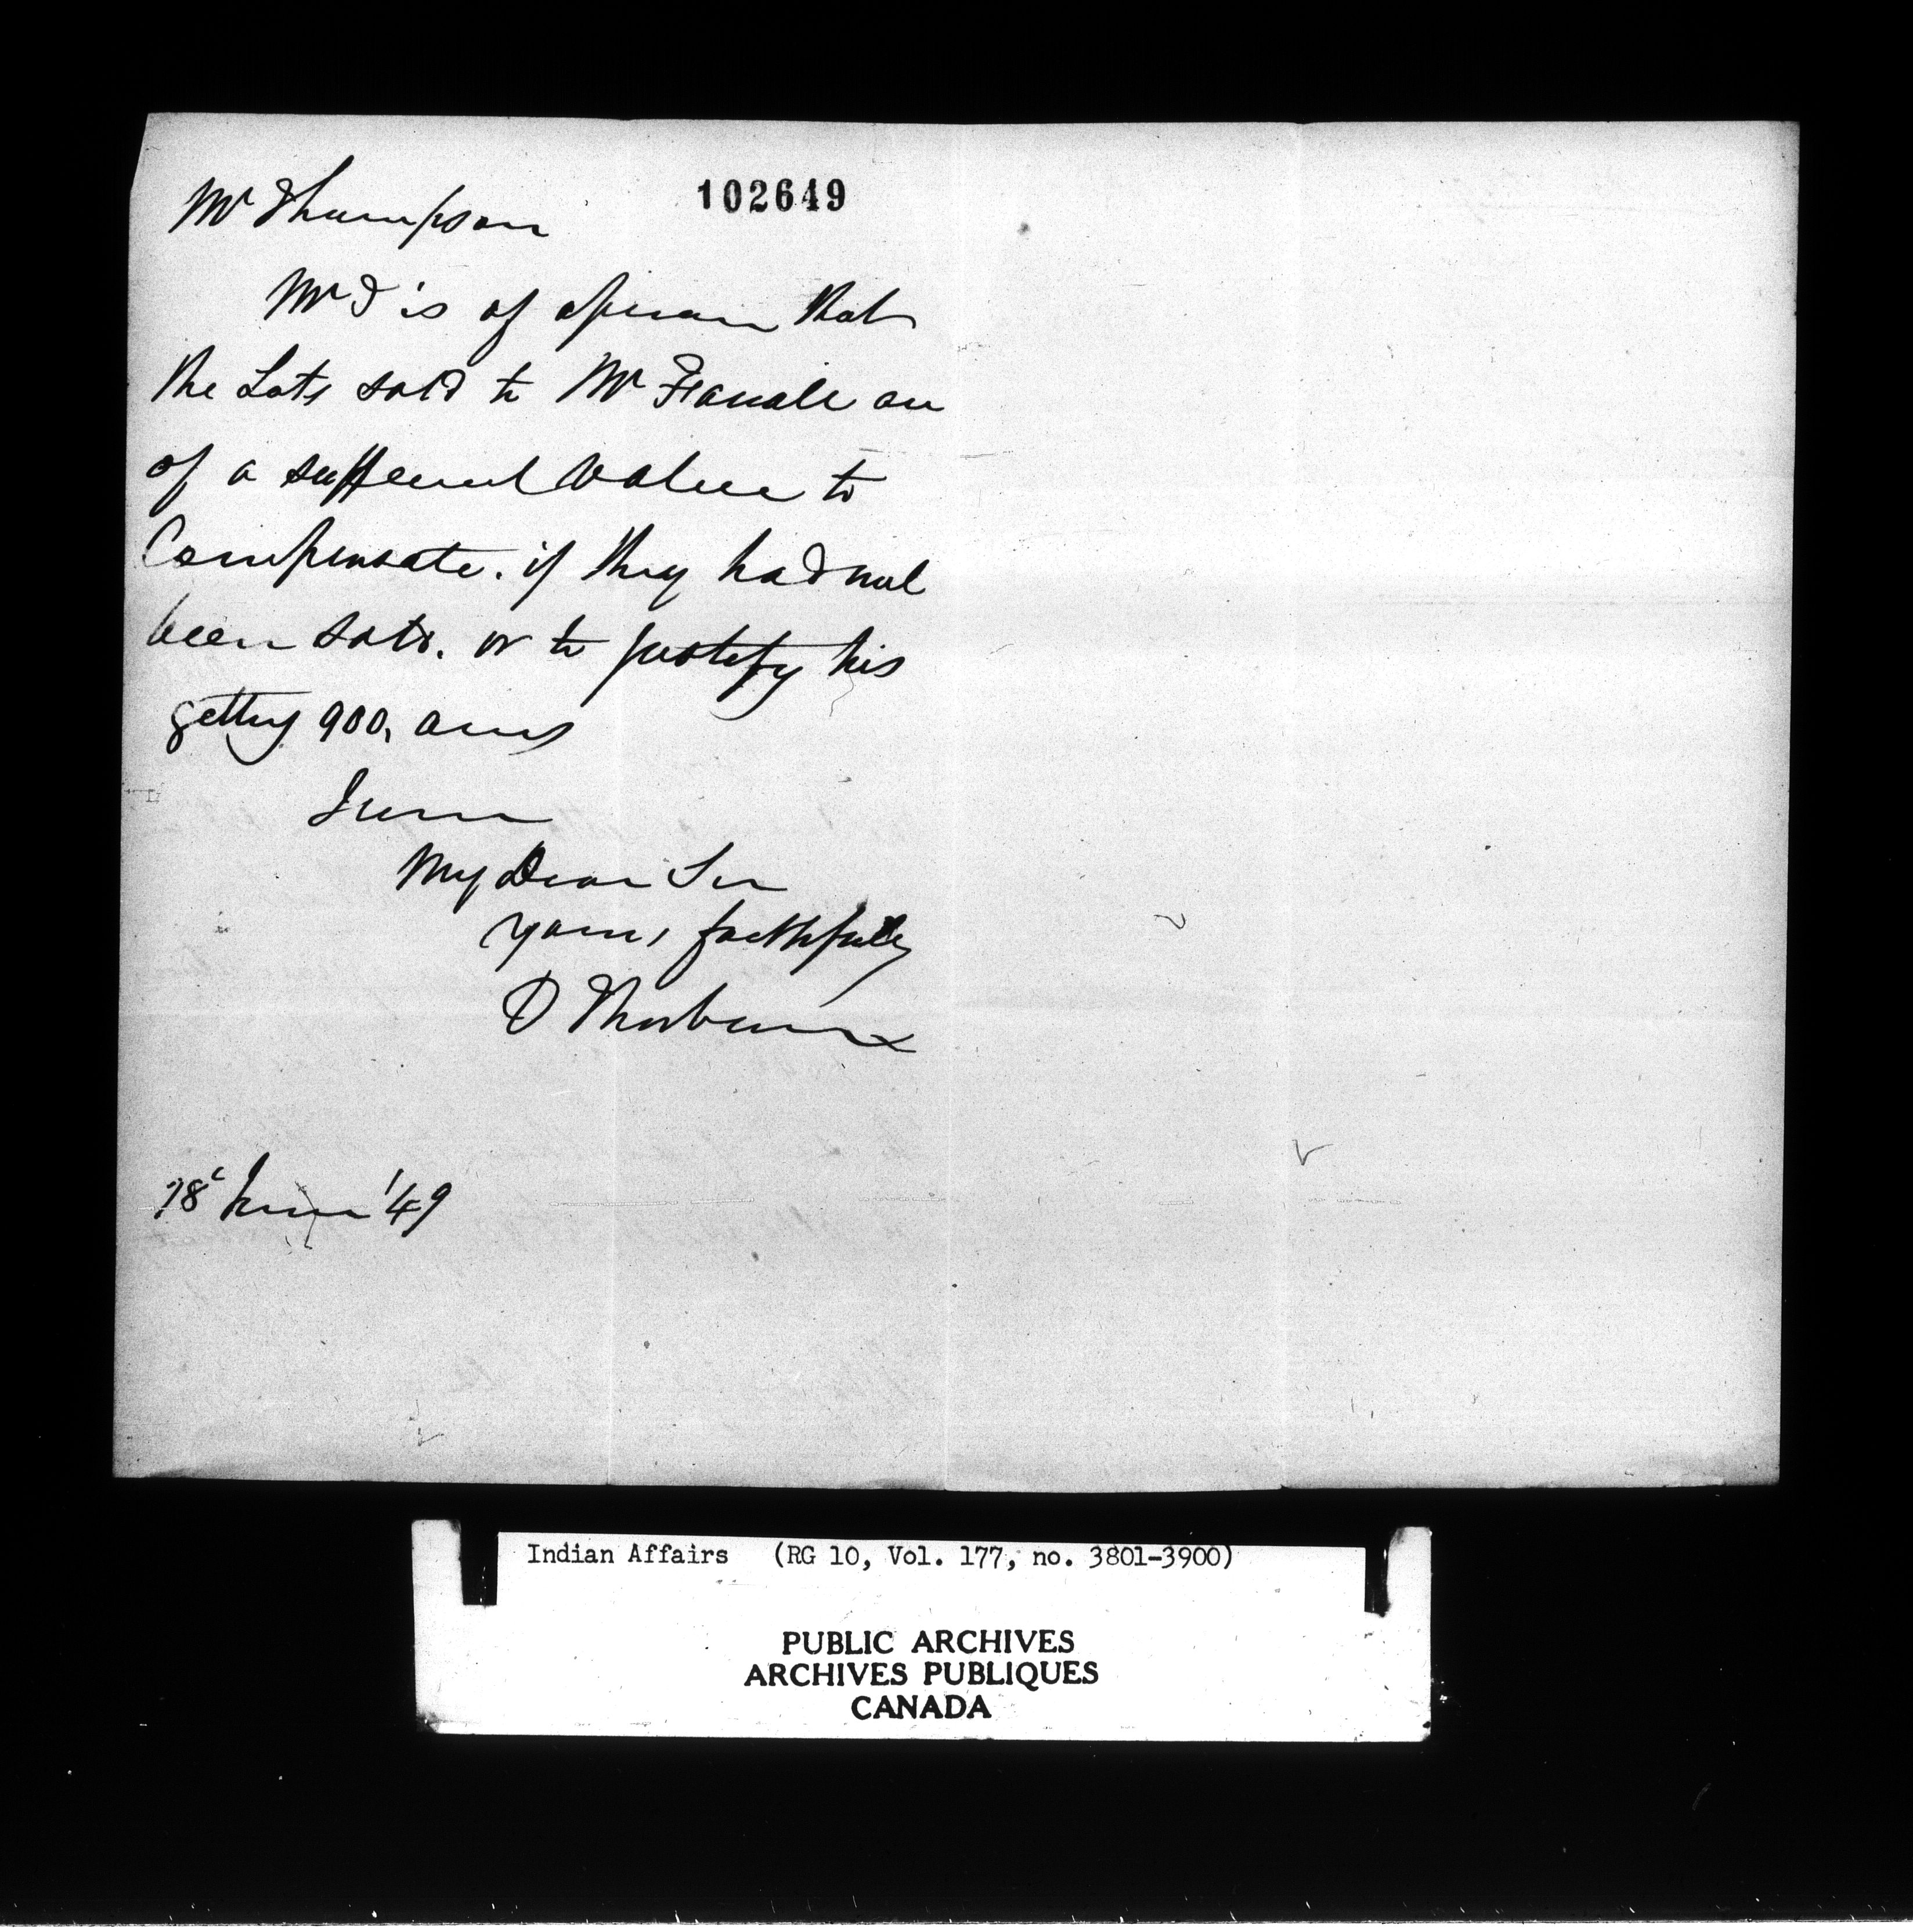 102649
Mr Thompson
Mr T is of opinion that
the Lots sold to Mr are
of a sufficient value to
Compensate. if they had not
been sold. or to justify his
getting 900, acres
I am
My Dear Sir
yours faithfully
D Thorburn
18t June '49
Indian Affairs (RG 10, Vol. 177, no. 3801-3900)
PUBLIC ARCHIVES
ARCHIVES PUBLIQUES
CANADA